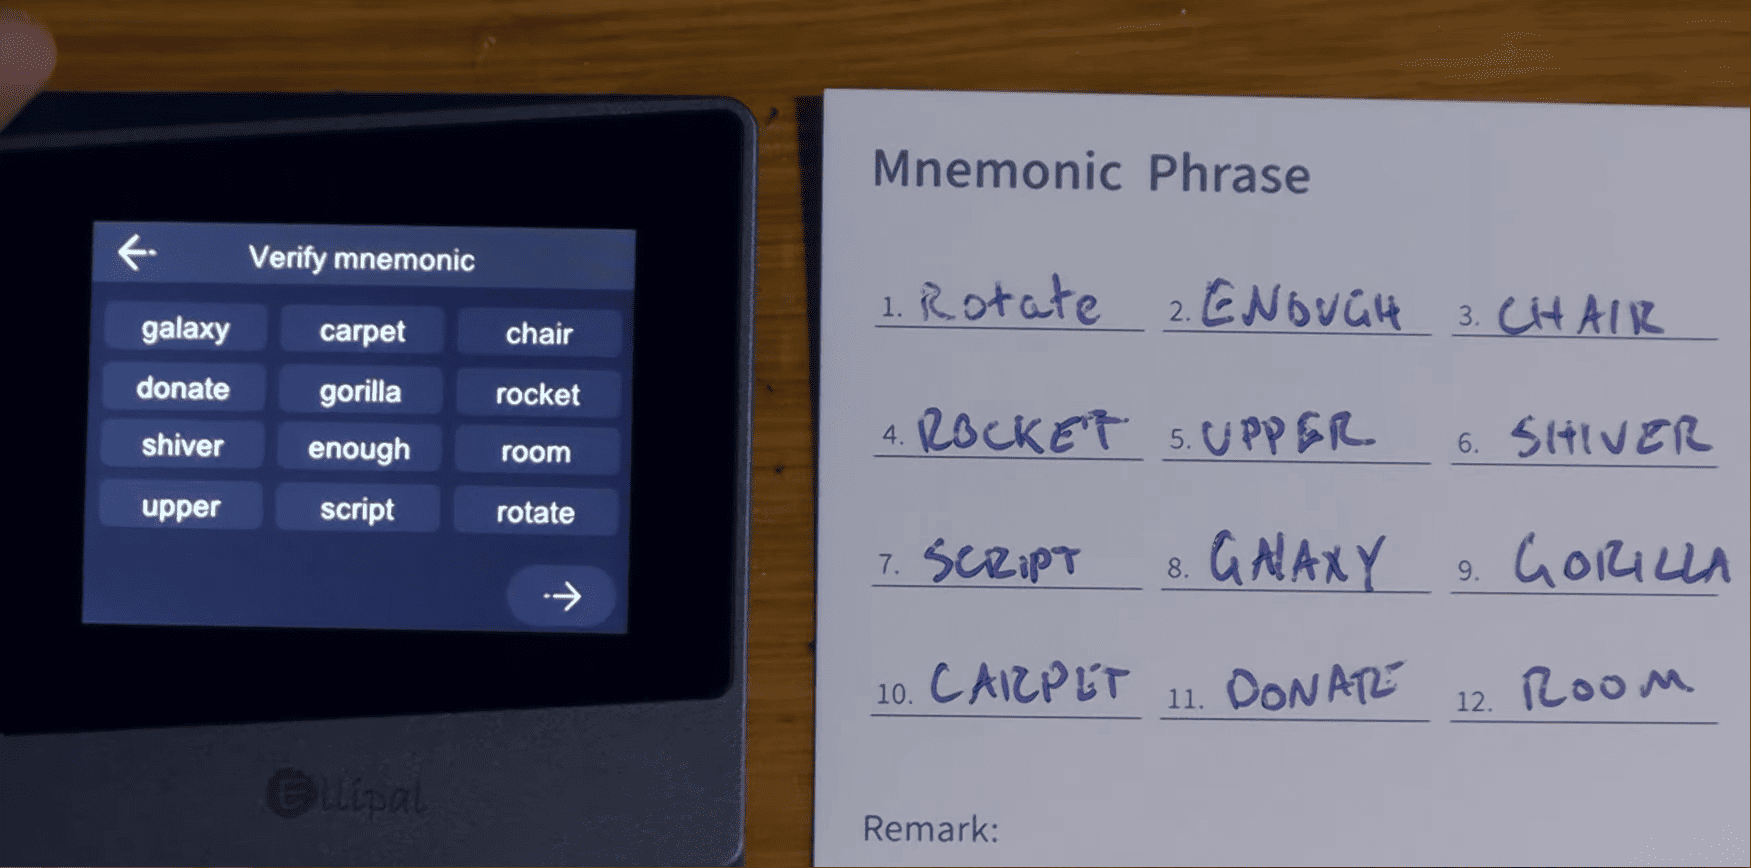 Verify mnemonic
galaxy carpet chair
donate gorilla rocket
shiver enough room
upper script rotate
Ellipal
Mnemonic Phrase
1. Rotate 2. ENOUGH 3. CHAIR
4. ROCKET 5. UPPER 6. SHIVER
7. SCRIPT 8. GALAXY 9. GORILLA
10. CARPET 11. DONATE 12. ROOM
Remark: